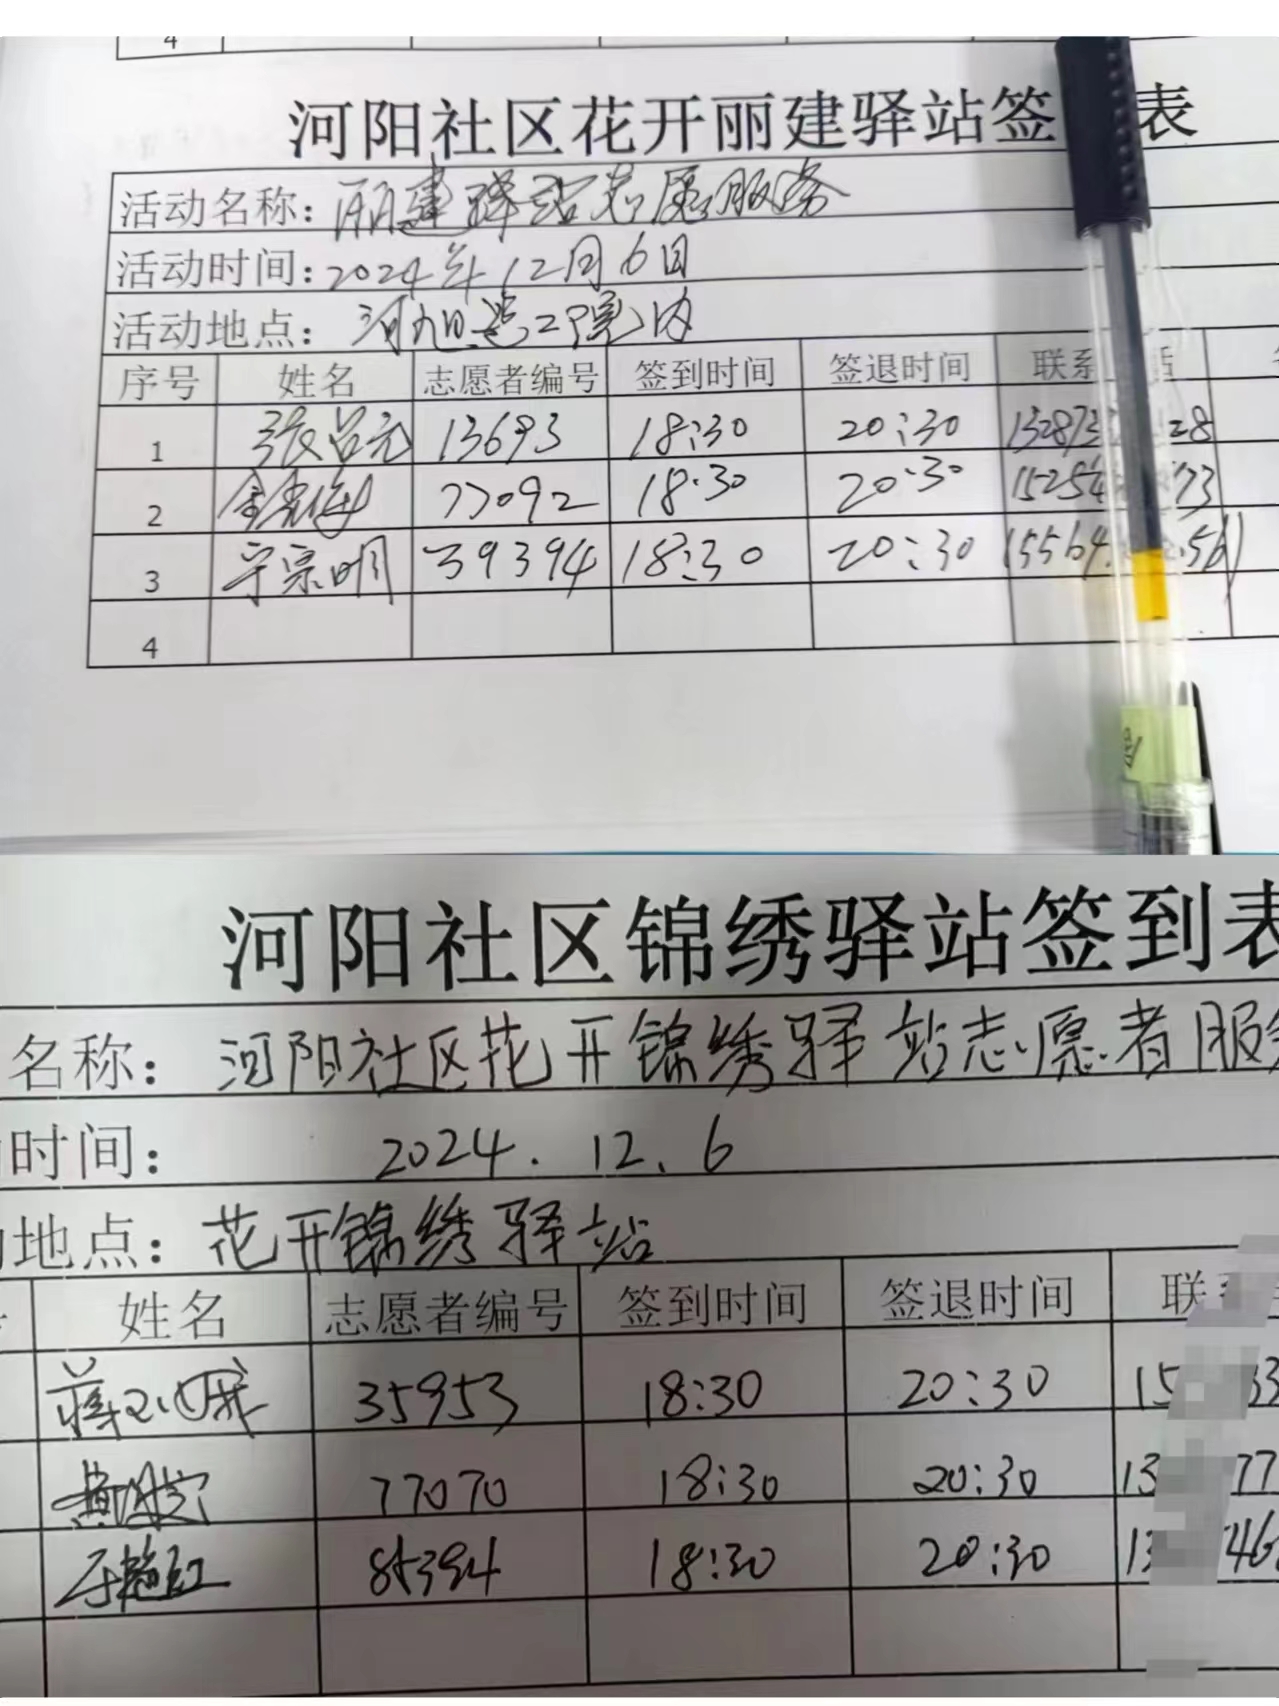 4
河阳社区花开丽建驿站签 表
活动名称: 丽建驿站志愿服务
活动时间: 2024年12月6日
活动地点: 河旭 院内
序号 姓名 志愿者编号 签到时间 签退时间 联系 话
1 张吕元 13693 18:30 20:30 13287 28
2 77092 18:30 20:30 15254 73
3 宗明 39394 18:30 20:30 15564 561
4
河阳社区锦绣驿站签到表
名称: 河阳社区花开锦绣驿站志愿者服务
时间: 2024.12.6
地点: 花开锦绣驿站
姓名 志愿者编号 签到时间 签退时间 联系
35953 18:30 20:30 15 33
77070 18:30 20:30 13 77
于艳红 85394 18:30 20:30 13 46